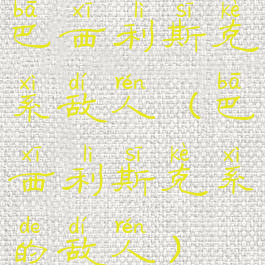 bā xī lì sī kè
巴西利斯克
xì dí rén bā
系敌人（巴
xī lì sī kè xì
西利斯克系
de dí rén
的敌人）